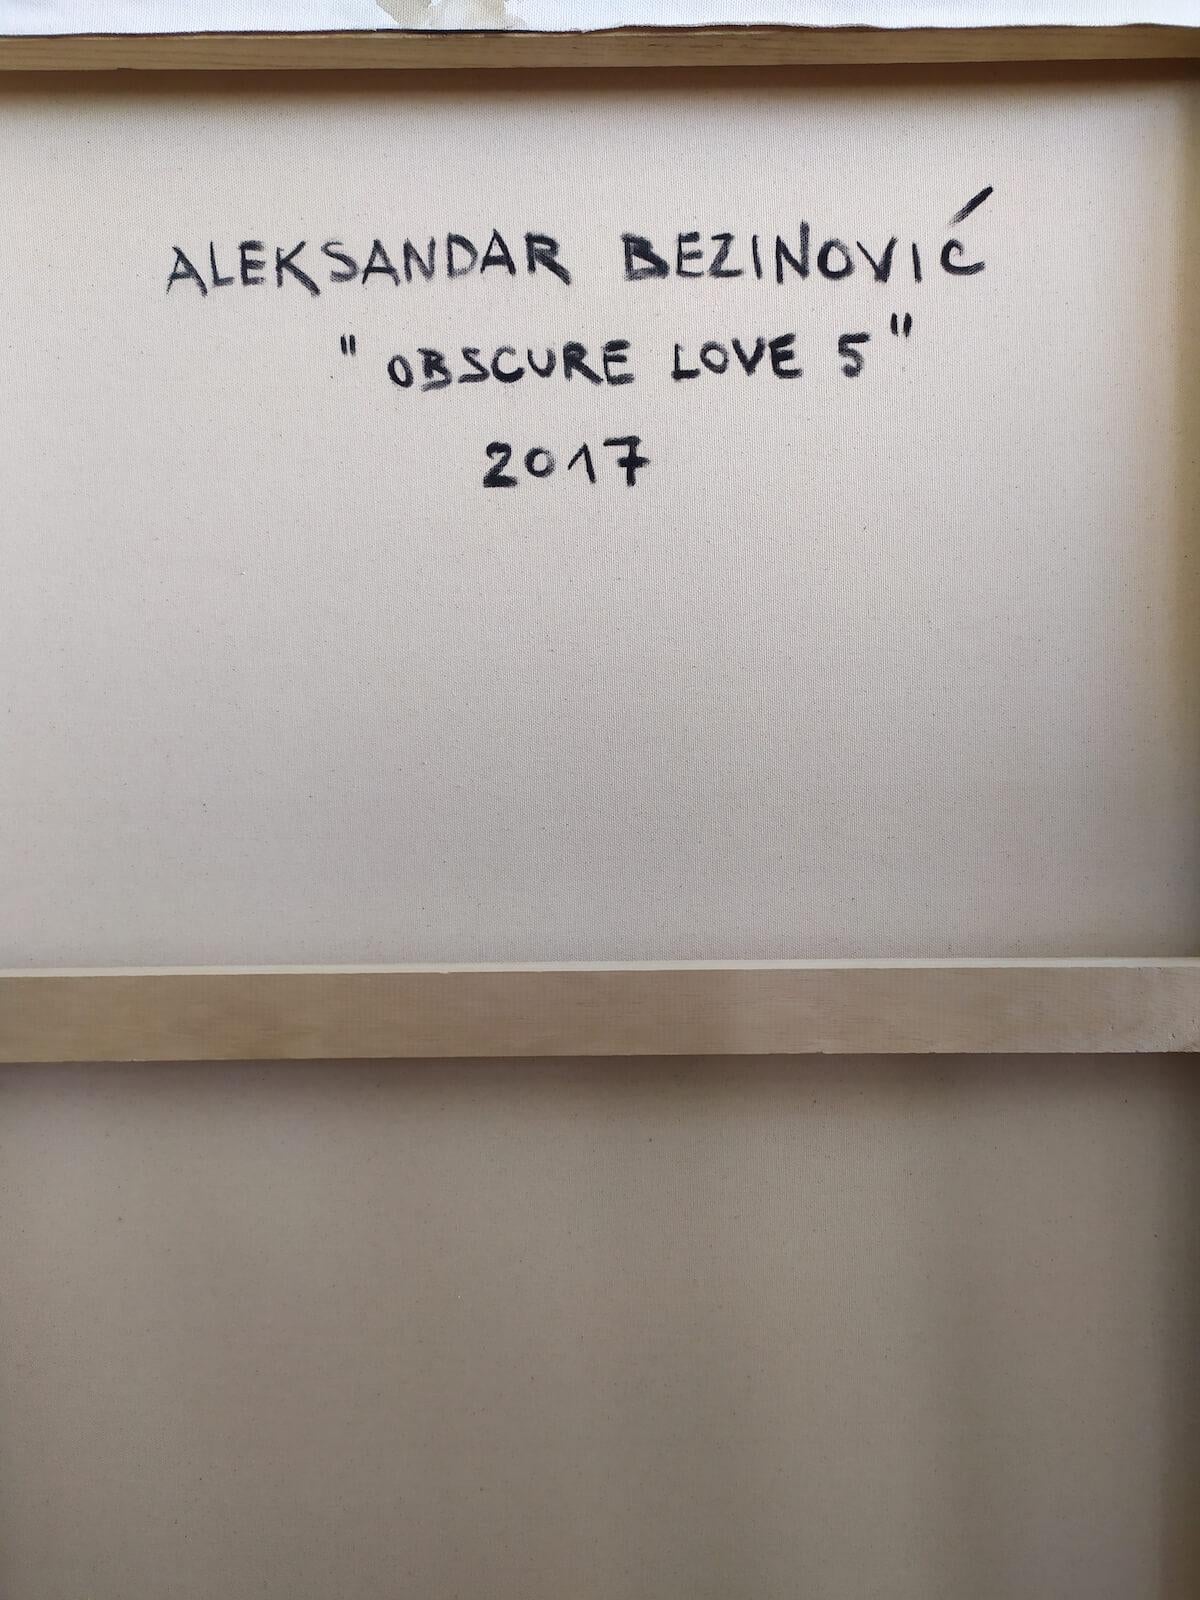 ALEKSANDAR BEZINOVIĆ
"OBSCURE LOVE 5"
2017